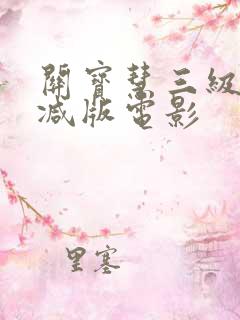 關寶慧三級
減版電影
里塞